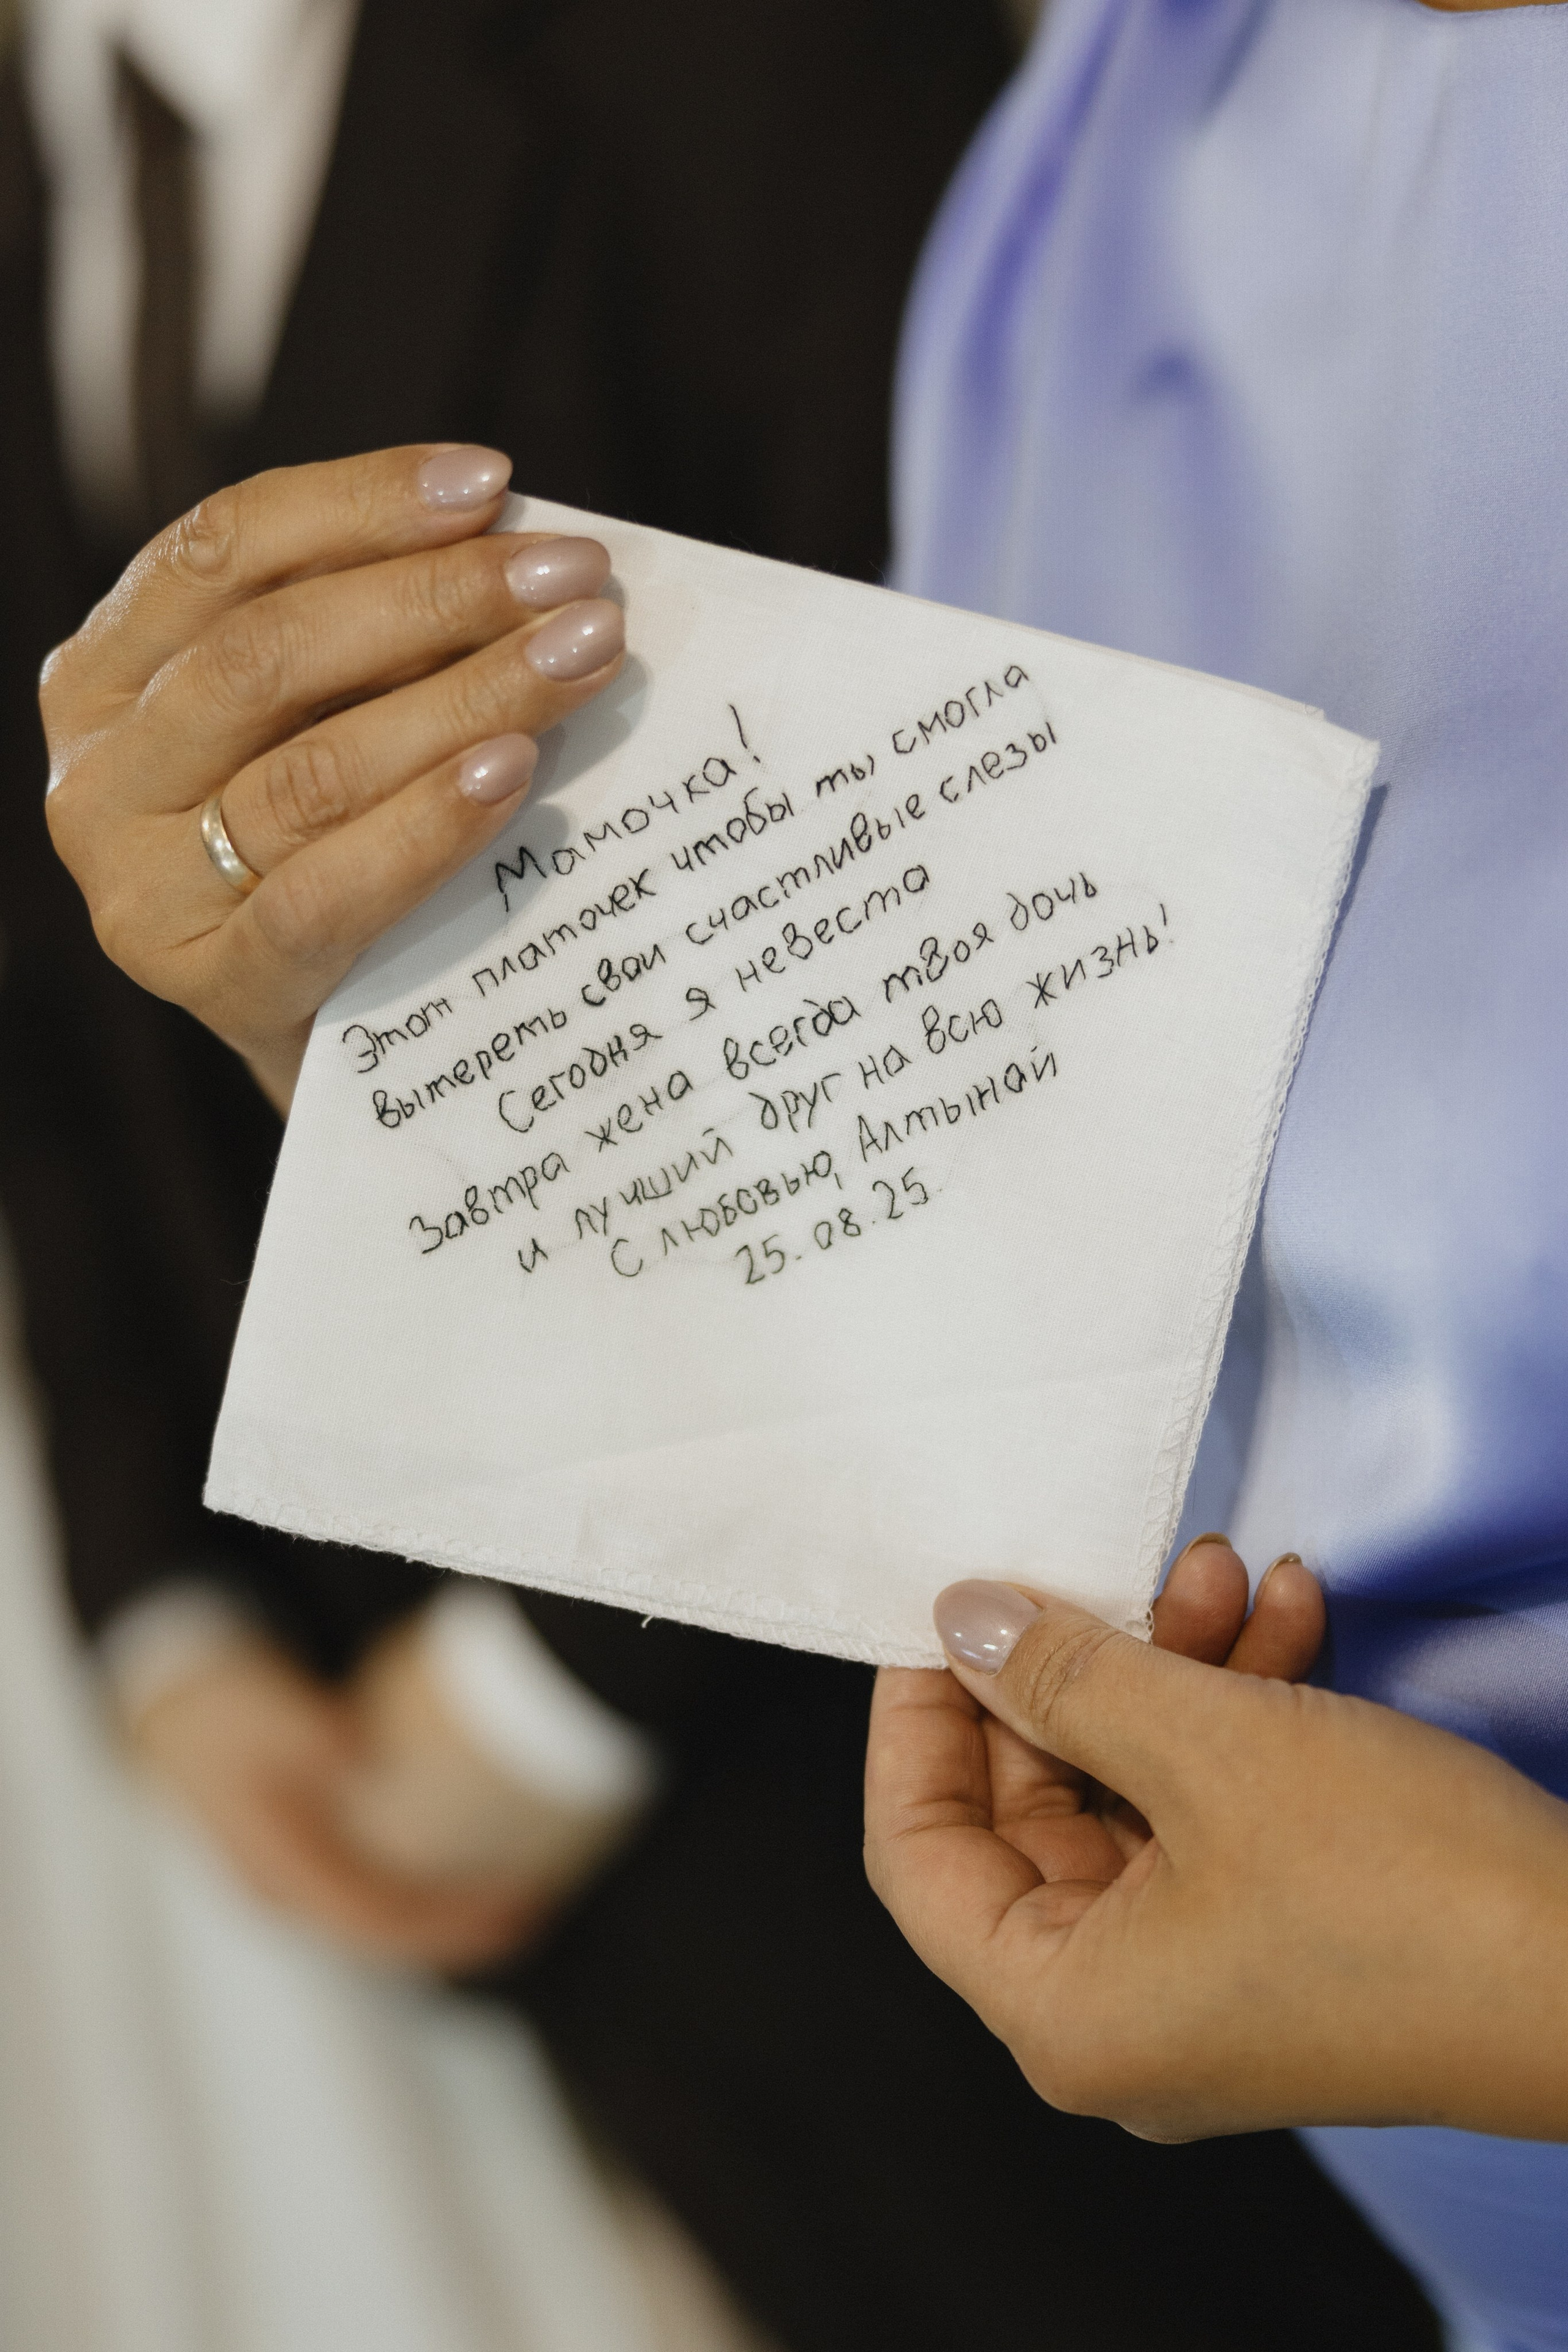 Мамочка!
Этот платочек чтобы ты смогла
вытереть свои счастливые слезы
Сегодня я невеста
Завтра жена всегда твоя дочь
и лучший друг на всю жизнь!
С любовью, Алтынай
25.08.25.